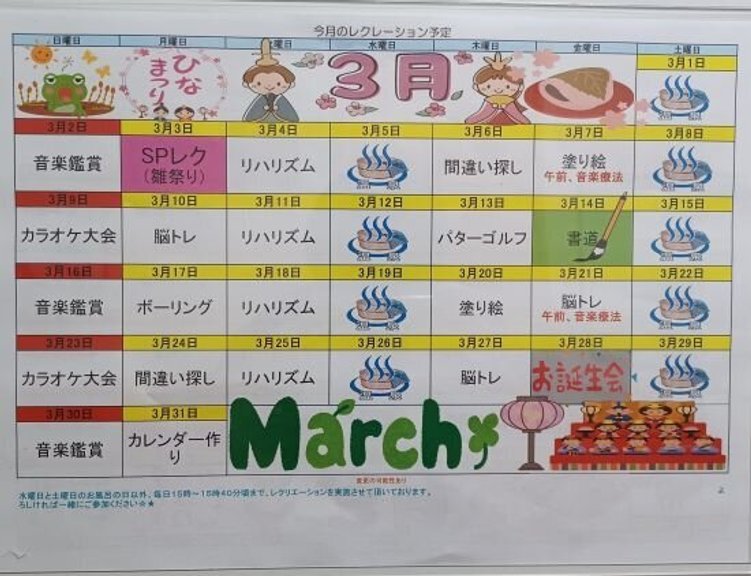 今月のレクレーション予定
日曜日 月曜日 火曜日 水曜日 木曜日 金曜日 土曜日
ひな
まつり
3月
3月1日
3月2日 3月3日 3月4日 3月5日 3月6日 3月7日 3月8日
音楽鑑賞 SPレク リハリズム 間違い探し 塗り絵
(雛祭り) 午前、音楽療法
3月9日 3月10日 3月11日 3月12日 3月13日 3月14日 3月15日
カラオケ大会 脳トレ リハリズム パターゴルフ 書道
3月16日 3月17日 3月18日 3月19日 3月20日 3月21日 3月22日
音楽鑑賞 ボーリング リハリズム 塗り絵 脳トレ
午前、音楽療法
3月23日 3月24日 3月25日 3月26日 3月27日 3月28日 3月29日
カラオケ大会 間違い探し リハリズム 脳トレ お誕生会
3月30日 3月31日
音楽鑑賞 カレンダー作
り
March
変更の可能性あり
水曜日と土曜日のお風呂の日以外、毎日15時~15時40分頃まで、レクリエーションを実施させて頂いております。
ろしければ一緒にご参加ください☆★